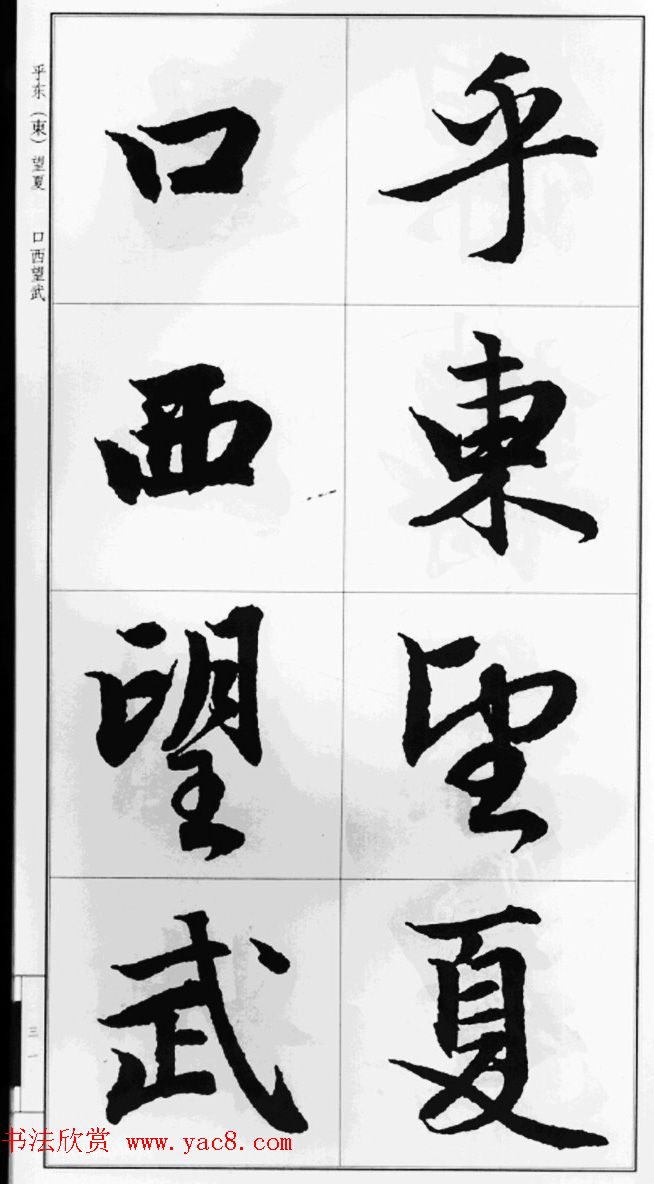 乎東望夏
口西望武
乎东（東）望夏 口西望武
三一
书法欣赏 www.yac8.com